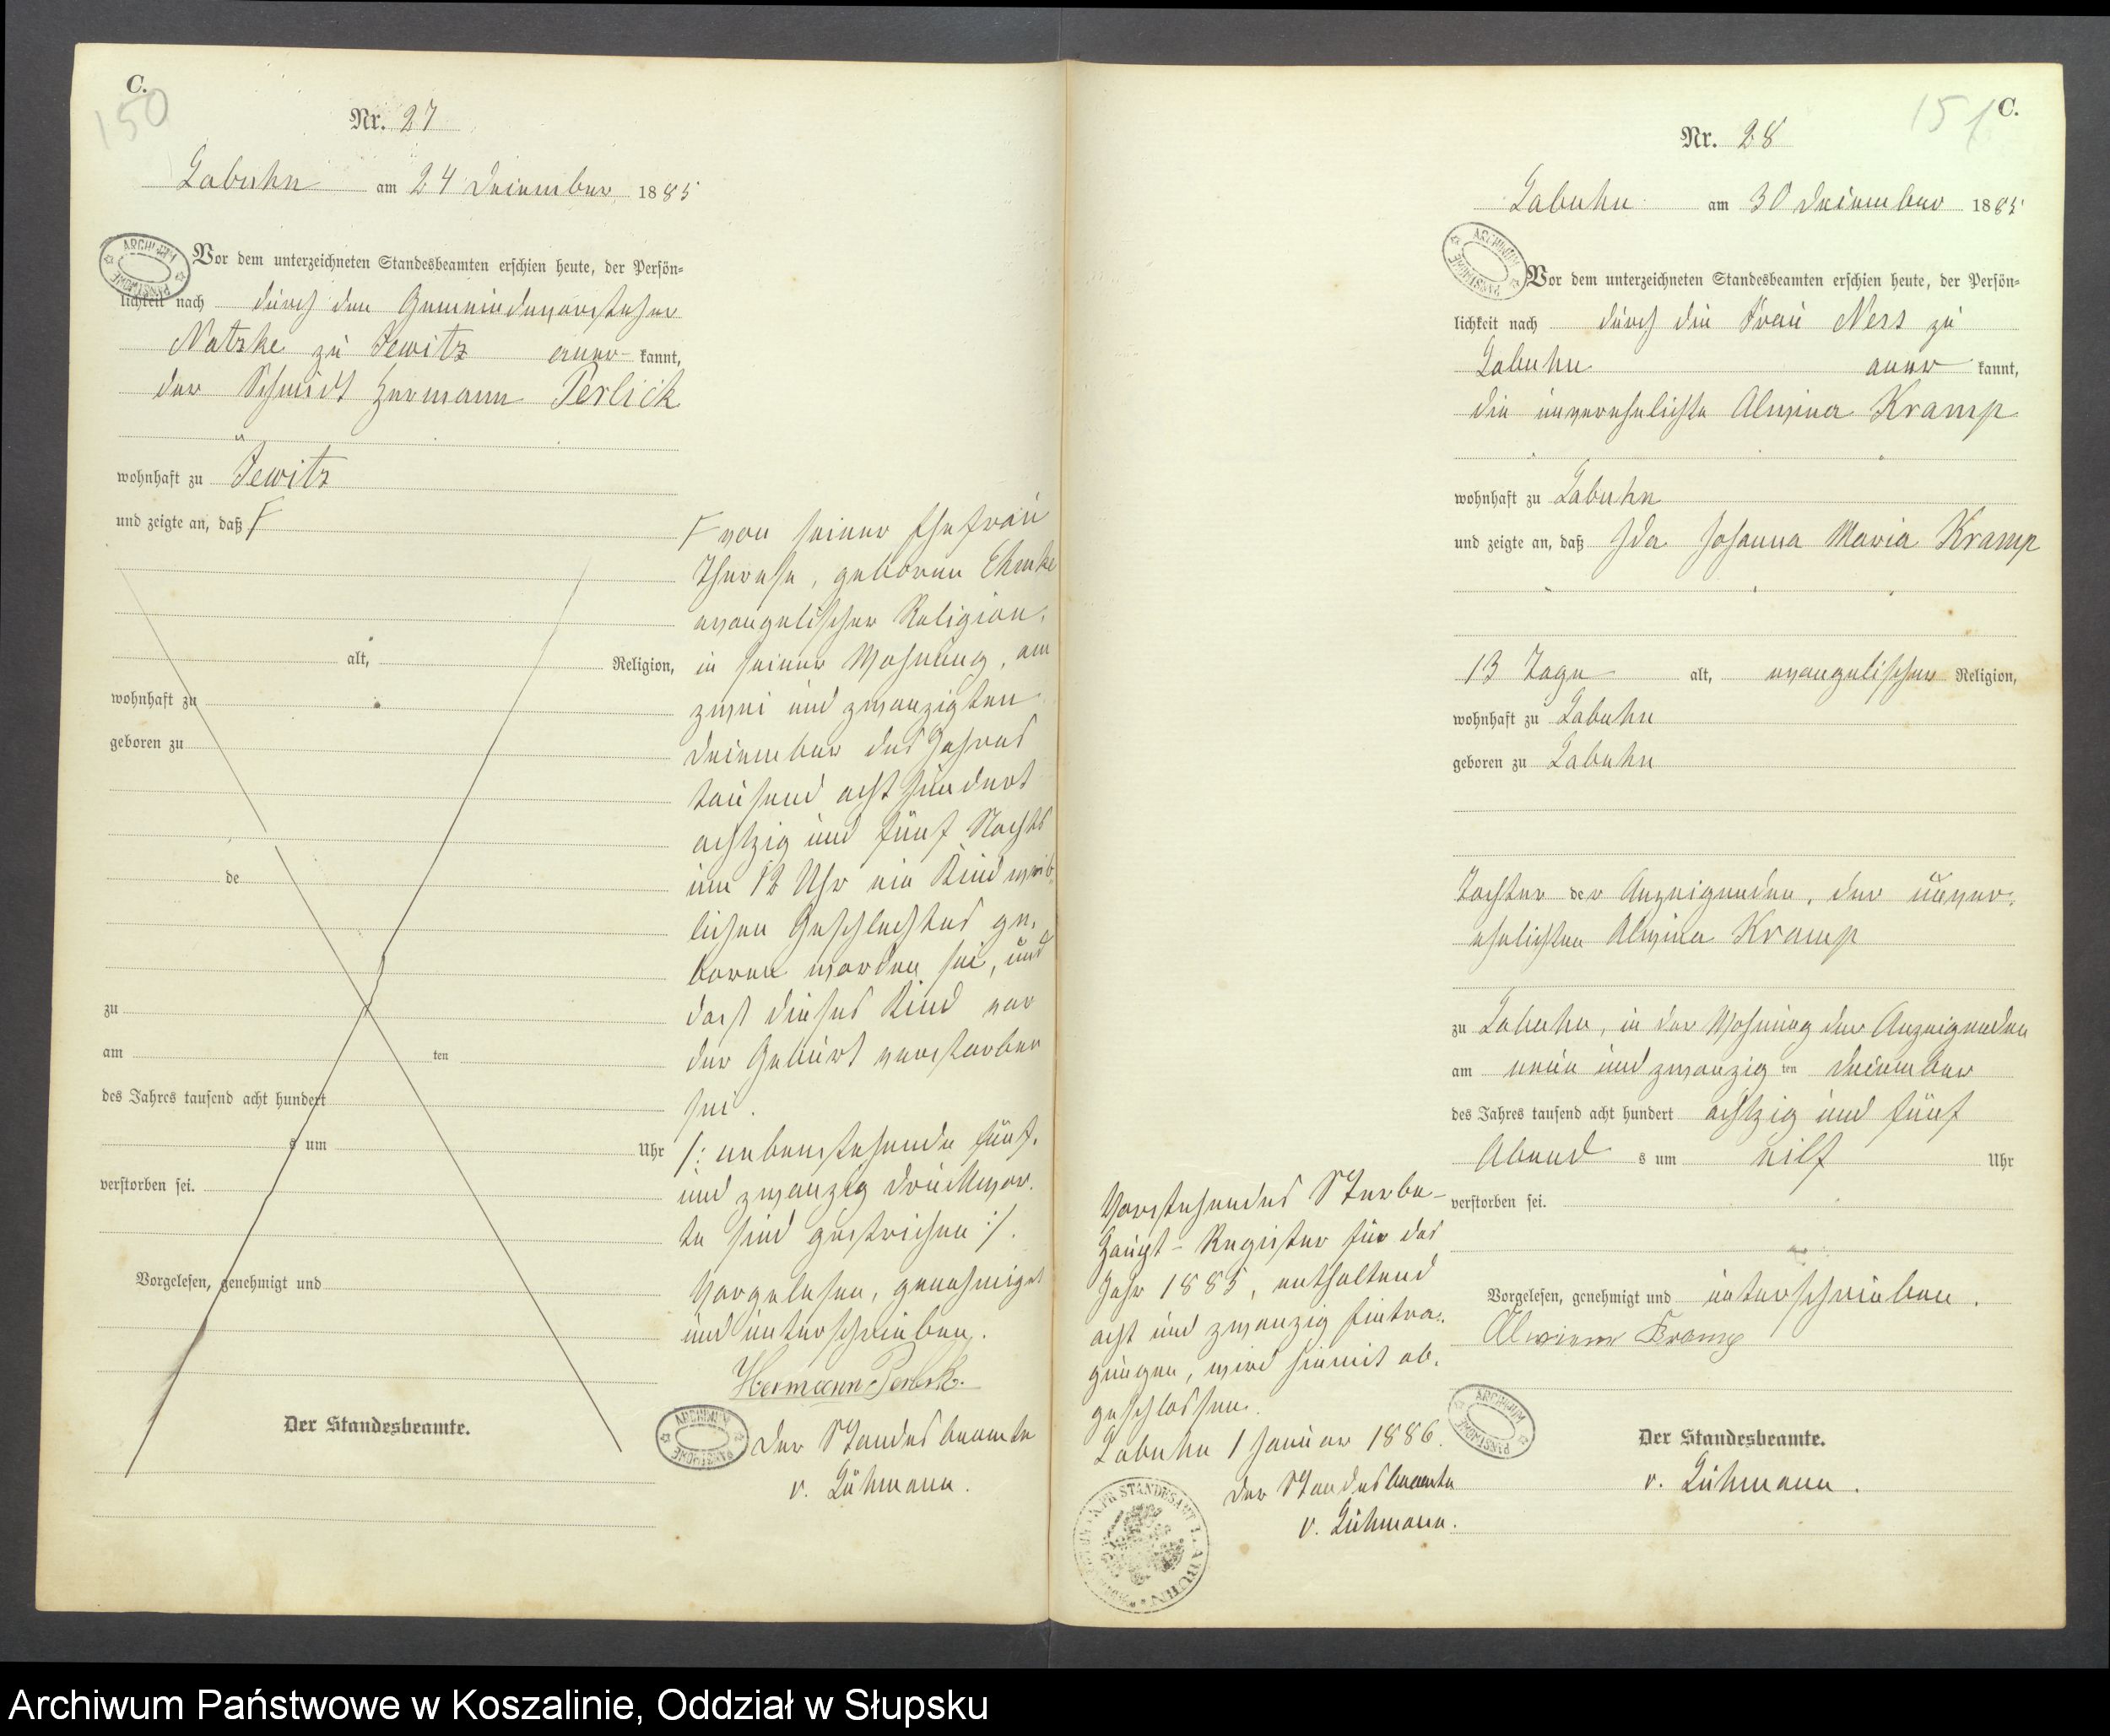 C.
150
Nr. 27
Labuhn am 24 December 1885
Vor dem unterzeichneten Standesbeamten erschien heute, der Persön=
lichkeit nach durch den Gemeindevorsteher
Natzke zu Jewitz aner- kannt,
der Schmidt Hermann Perlick
wohnhaft zu Jewitz
und zeigte an, daß F
alt, Religion,
wohnhaft zu
geboren zu
de
zu
am ten
des Jahres tausend acht hundert
s um Uhr
verstorben sei.
Vorgelesen, genehmigt und
Der Standesbeamte.
F von seiner Ehefrau
Therese, geboren Ehmke
evangelischer Religion,
in seiner Wohnung, am
zwei und zwanzigten
December des Jahres
tausend acht hundert
achtzig und fünf Nachts
um 12 Uhr ein Kind weib-
lichen Geschlechtes ge-
boren worden sei, und
dass dieses Kind vor
der Geburt verstorben
sei.
/: nebenstehende fünf-
und zwanzig Druckwor-
te sind gestrichen :/.
Vorgelesen, genehmiget
und unterschrieben.
Hermann Perlick.
Der Standesbeamte
v. Lühmann.
ARCHIWUM PAŃSTWOWE
C.
151
Nr. 28
Labuhn am 30 December 1885
Vor dem unterzeichneten Standesbeamten erschien heute, der Persön=
lichkeit nach durch die Frau Ness zu
Labuhn aner kannt,
die unverehelichte Alwina Kramp
wohnhaft zu Labuhn
und zeigte an, daß Ida Johanna Maria Kramp
13 Tage alt, evangelischer Religion,
wohnhaft zu Labuhn
geboren zu Labuhn
Tochter der Anzeigenden, der unver-
ehelichten Alwina Kramp
zu Labuhn, in der Wohnung der Anzeigenden
am neun und zwanzig ten December
des Jahres tausend acht hundert achtzig und fünf
Abend s um eilf Uhr
verstorben sei.
Vorgelesen, genehmigt und unterschrieben.
Alwiene Kramp
Der Standesbeamte.
v. Lühmann.
Vorstehendes Sterbe-
Haupt-Register für das
Jahr 1885, enthaltend
acht und zwanzig Eintra-
gungen, wird hiemit ab-
geschlossen.
Labuhn 1 Januar 1886.
Der Standesbeamte
v. Lühmann.
K. PR. STANDESAMT LABUHN
Archiwum Państwowe w Koszalinie, Oddział w Słupsku